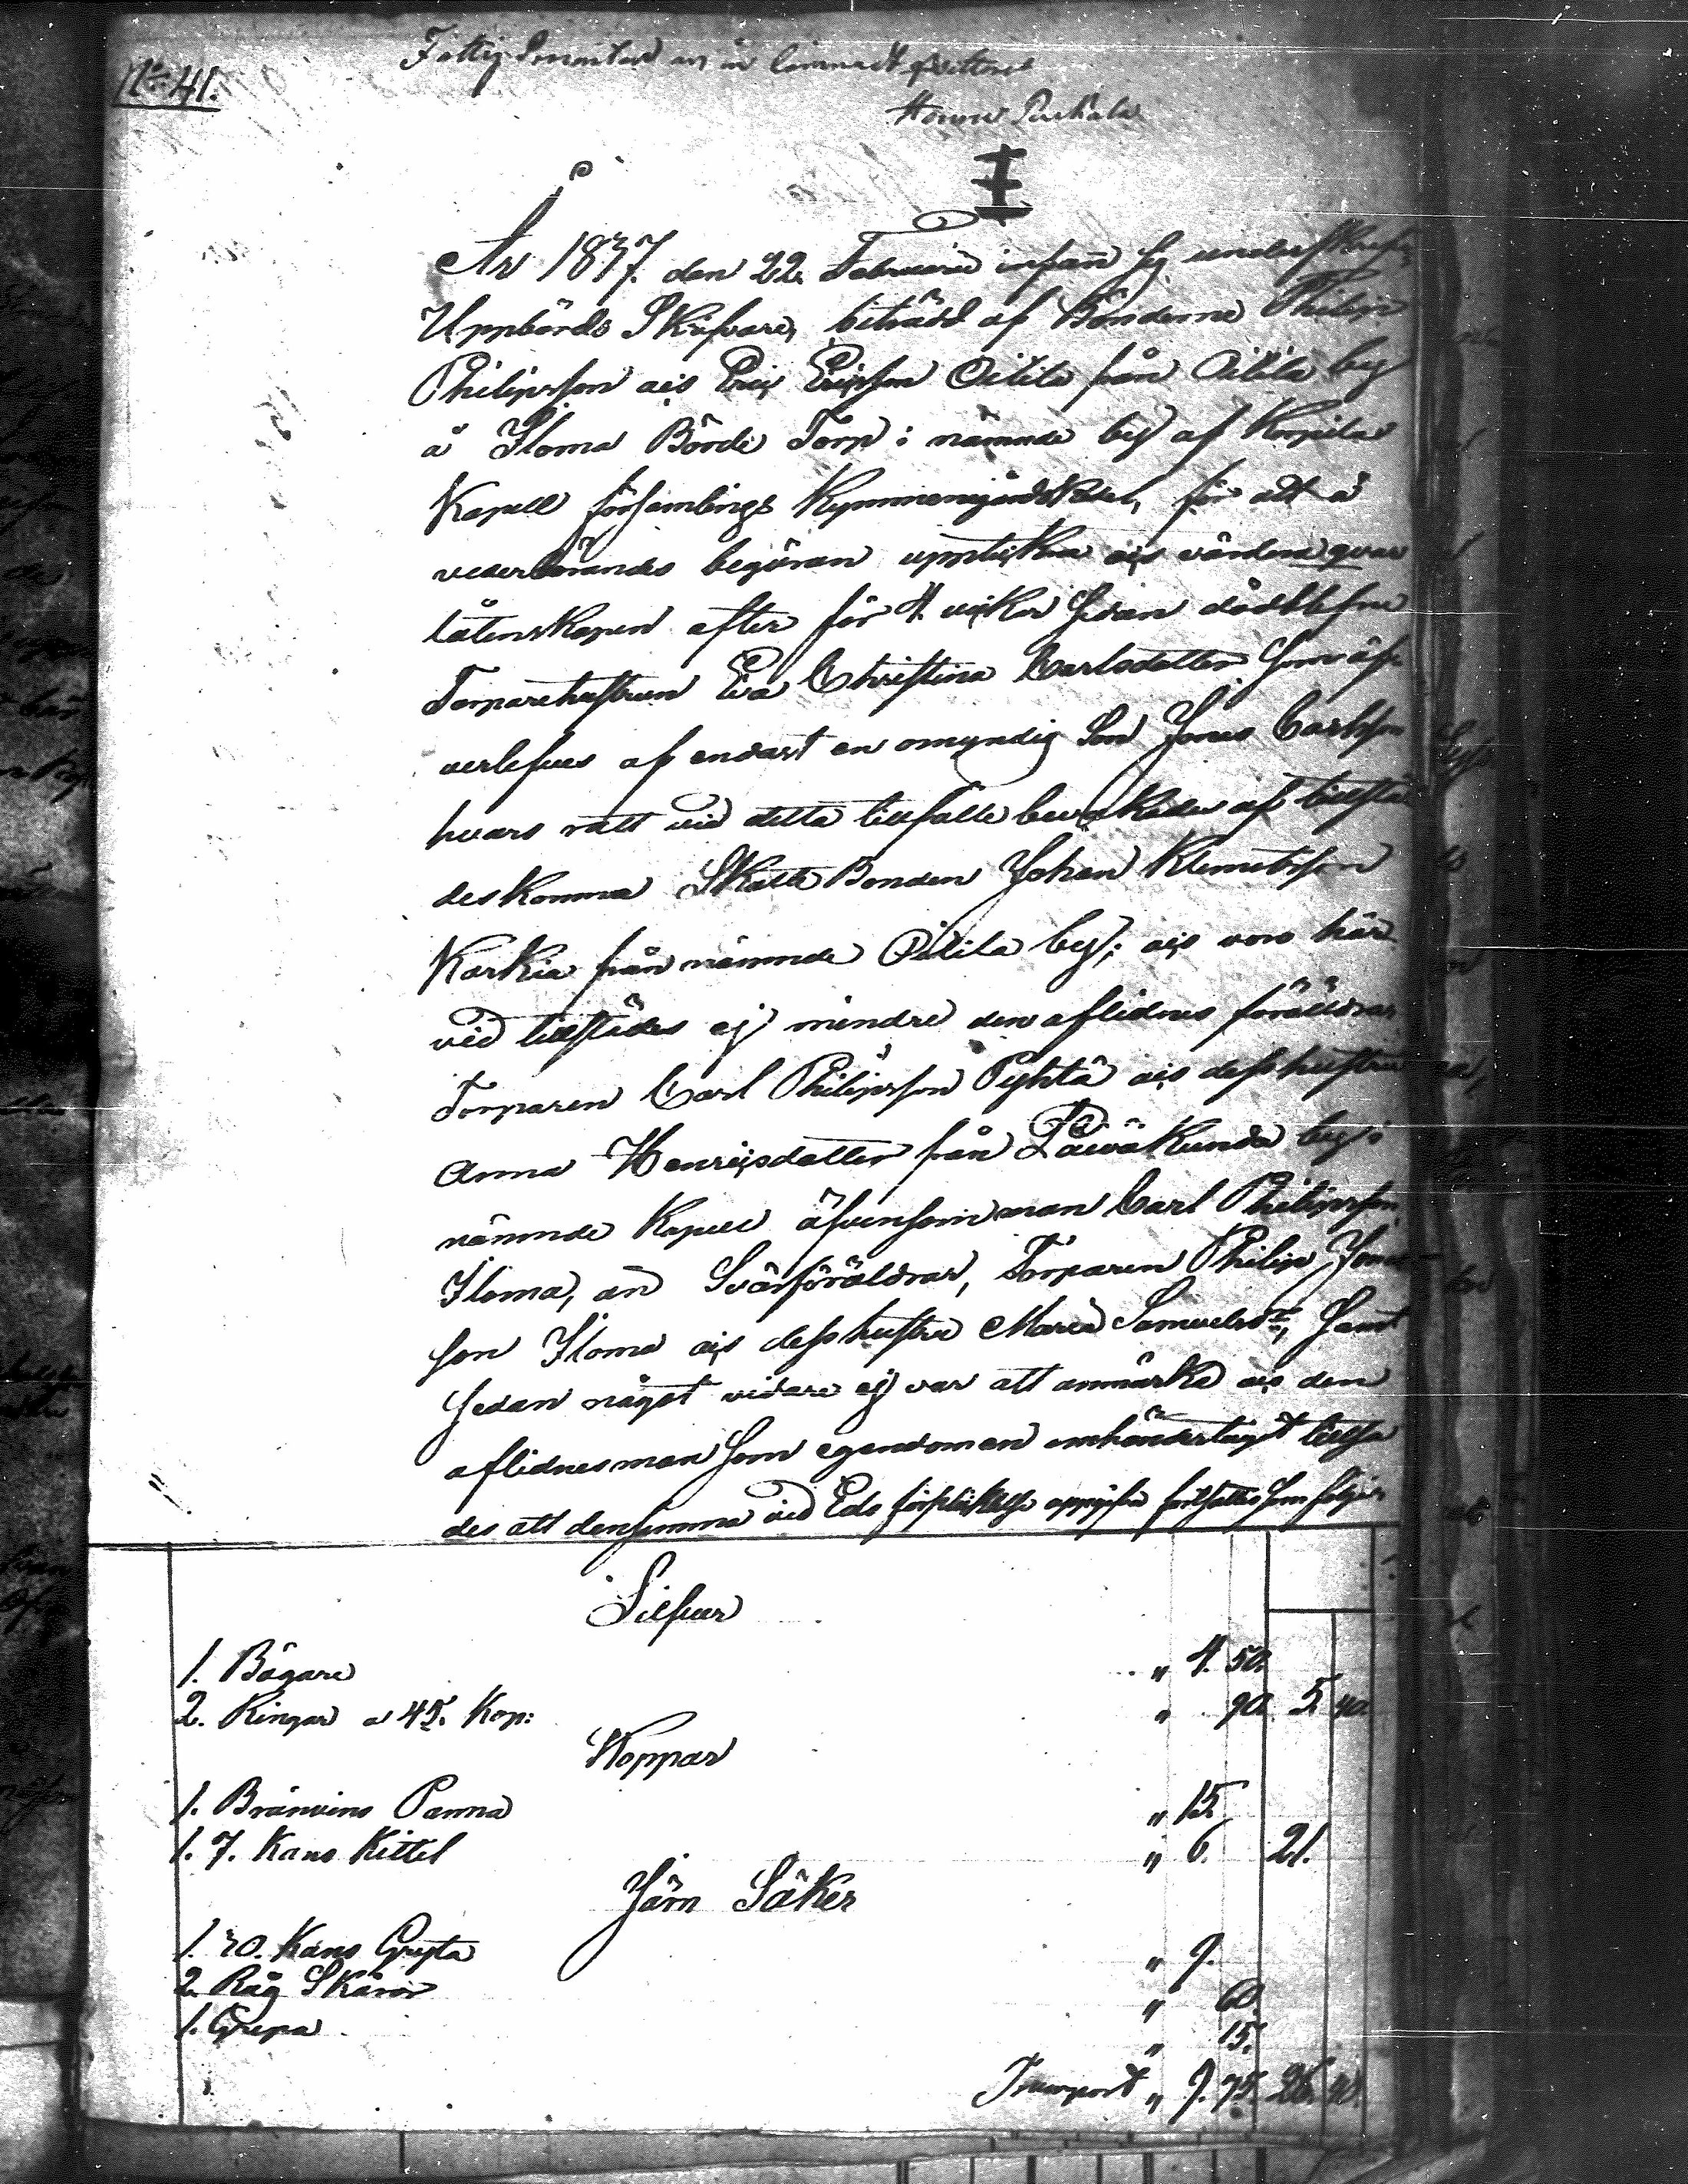 No 41.
Fattig
År 1837. den 22. Februarii infann sig underskrefn
Uppbörds Skrifvare, biträdd af Bönderne Philip
Philipsson och Eric Ericsson Oitila från Oitila by
å Iloma Börde Torp i nämnde by af Korpila
Kapell församlings Kymmenegårds Lähn, för att å
vederbörandes begäran uppteckna och värdera qvar
låtenskapen efter för 4. veckor sedan dödblefne
Torparehustrun Eva Christina Carlsdotter som öf-
verlefves af endast en omyndig Son Jonas Carlsson
hvars rätt vid detta tillfälle bevakades af tillstä
des komna Skatte Bonden Johan Klemetsson
Karkia från nämnde Oitila by; och voro här
vid tillstädes ej mindre den aflidnes föräldrar
Torparen Carl Philipsson Pyhtä och dess hustru
Anna Henricsdotter från Päiväkunda by i
nämnde Kapell äfvensom man Carl Philipsson
Iloma, än Svärföräldrar, Torparen Philip Jonas-
son Iloma och dess hustru Maria Samuelsdr, samt
sedan något vidare ej var att anmärka och den
aflidnes man som egendomen omhändertagit tillsa
des att densamma vid Eds förplicktelse uppgifva författades som följer
Silfver
1. Bägare " 4. 50.
2. Ringar a 45. Kop: " 90. 5. 40.
Koppar
1. Bränvins Panna " 15.
1. 7. Kans Kittel " 6. 21.
Järn Saker
1. 20. Kans Gryta " 9.
2. Råg Skäror " 60.
1. Grepa " 15.
Transport " 9. 75. 26. 40.